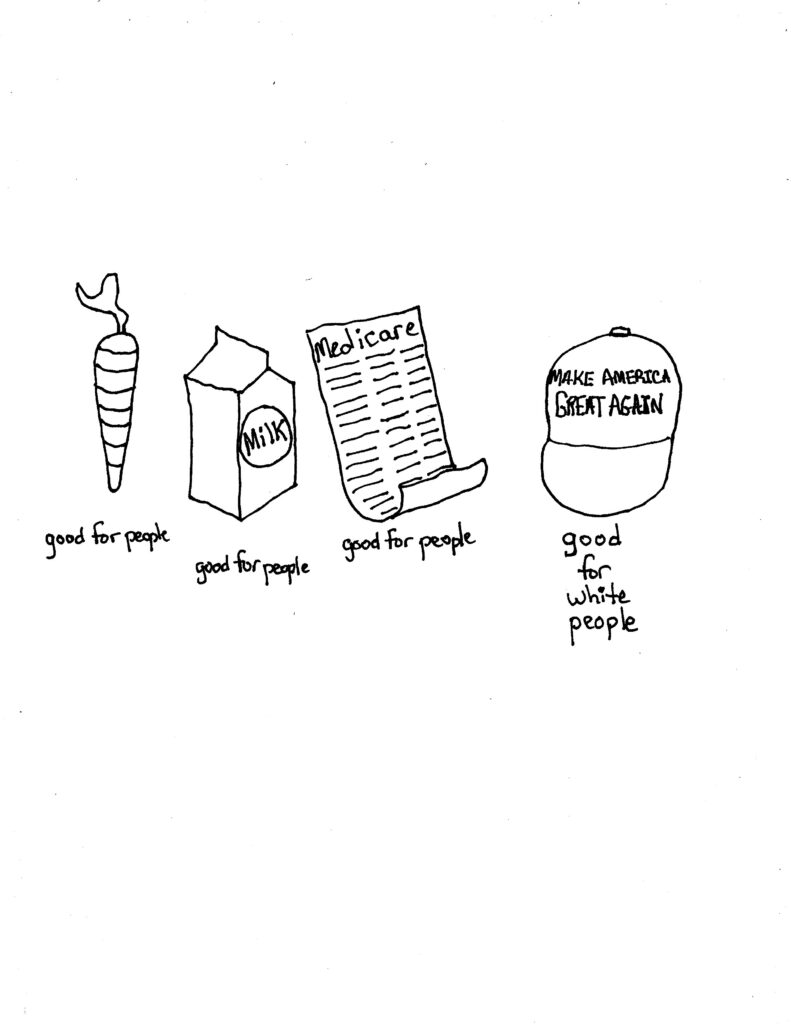 Medicare
MAKE AMERICA
GREAT AGAIN
Milk
good for people
good for people
good for people
good
for
white
people